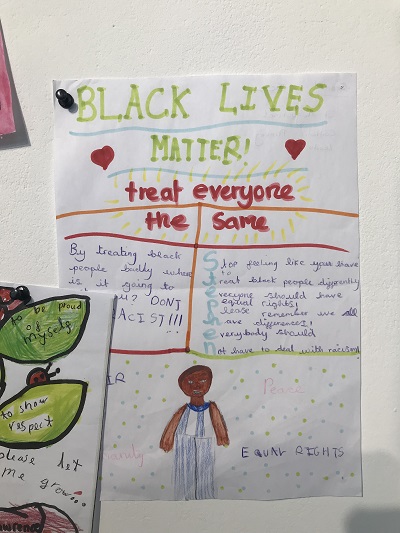 BLACK LIVES
MATTER!
treat everyone
the same
By treating black
people badly where
is it going to
you? DONT
ACIST!!!
Stop feeling like you have
to
reat black people differently
veryone should have
equal rights!
lease remember we all
are differences!
verybody should
not have to deal with racism
Stephen
Peace
EQUAL RIGHTS
to be proud
of
myself
to show
respect
please let
me grow...